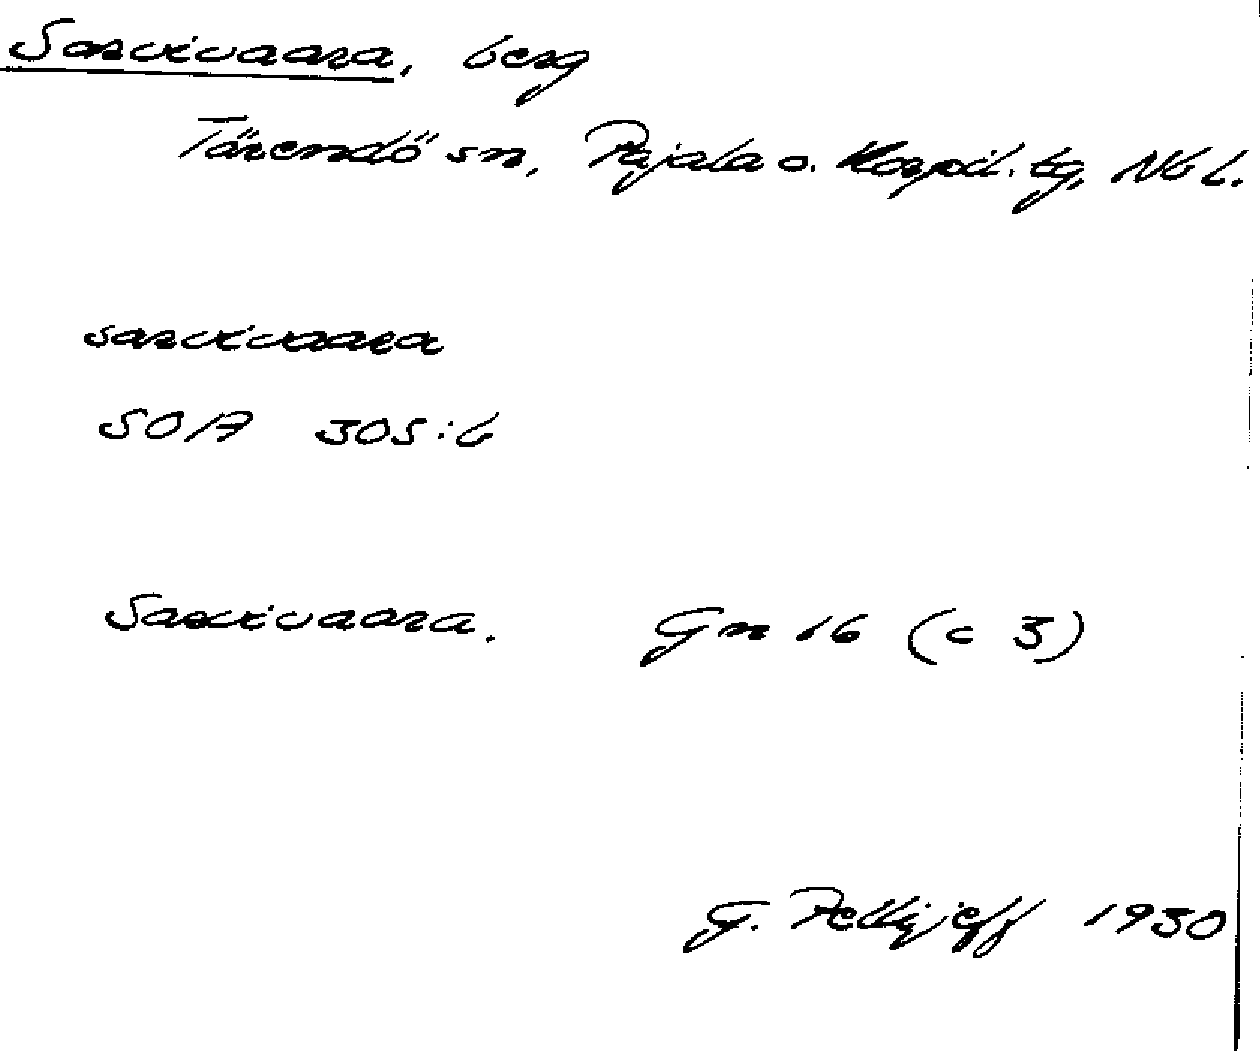 Sarvivaara, berg
Tärendö sn, Pajala o. Korpil. tg, Nb l.
sarvivaara
SOA 305:6
Sarvivaara. Gn 16 (c 3)
G. Pellijeff 1950